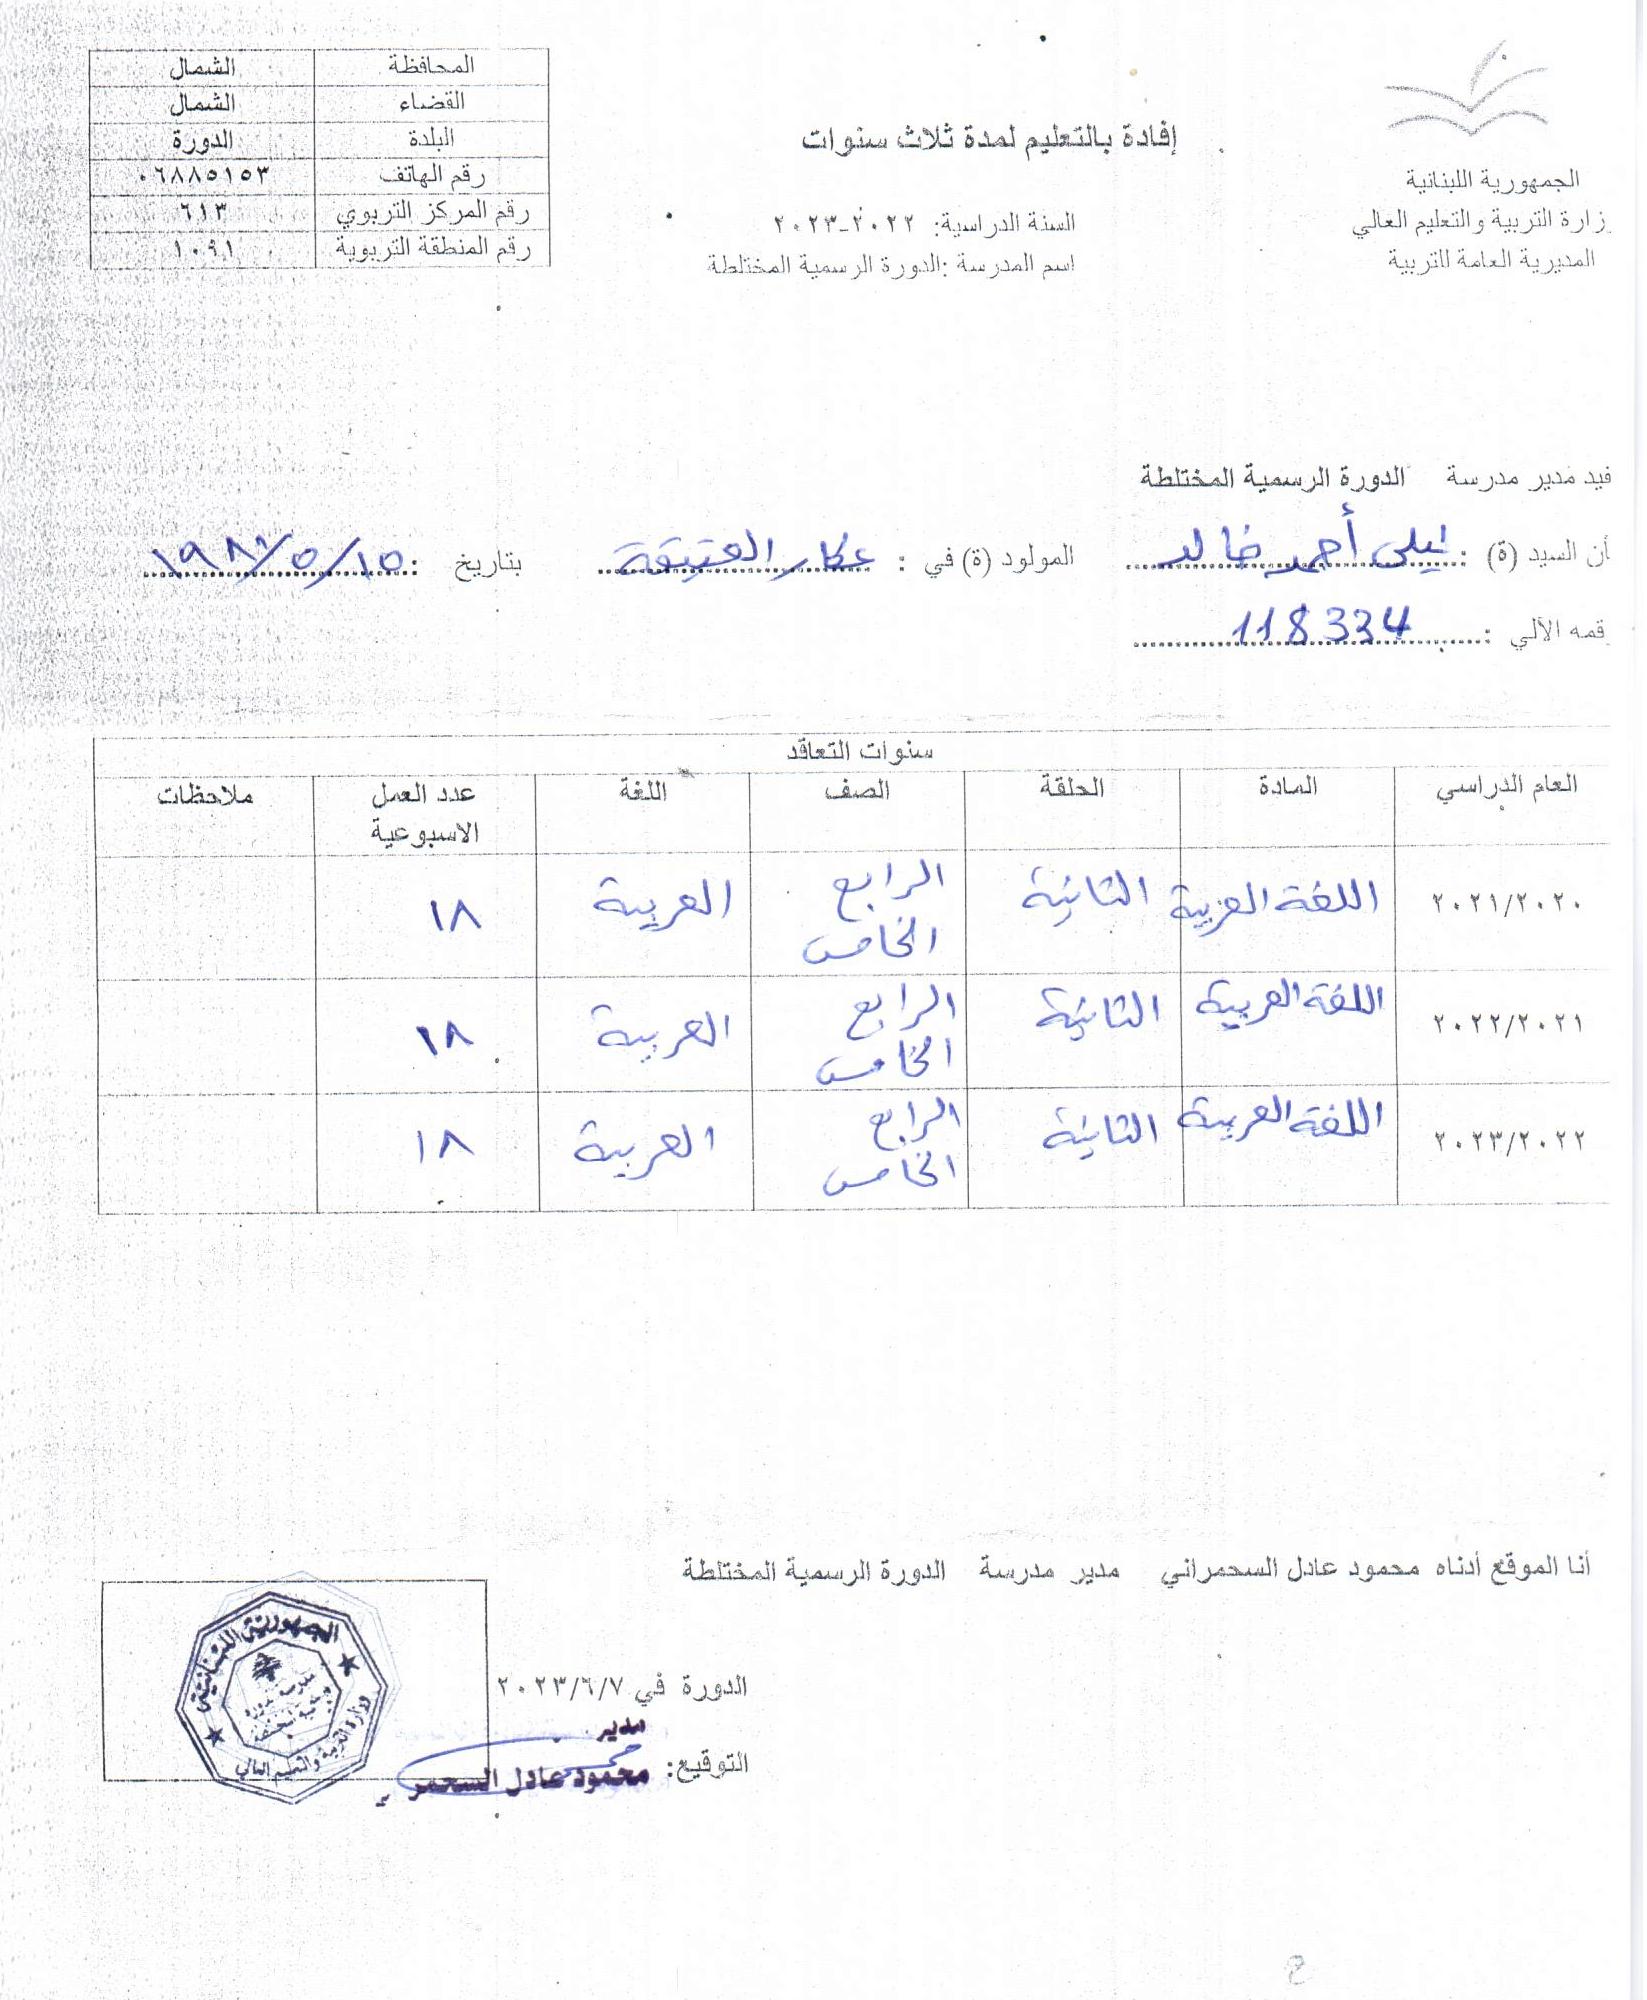 الجمهورية اللبنانية
زارة التربية والتعليم العالي
المديرية العامة للتربية
إفادة بالتعليم لمدة ثلاث سنوات
السنة الدراسية: ٢٠٢٢-٢٠٢٣
اسم المدرسة :الدورة الرسمية المختلطة
المحافظة الشمال
القضاء الشمال
البلدة الدورة
رقم الهاتف ٠٦٨٨٥١٥٣
رقم المركز التربوي ٦١٣
رقم المنطقة التربوية ١٠٩١
فيد مدير مدرسة الدورة الرسمية المختلطة
أن السيد (ة) : ليلى أحمد خالد المولود (ة) في : عكار العتيقة بتاريخ : ١٥/٥/
قمه الآلي : 118334
سنوات التعاقد
العام الدراسي المادة الحلقة الصف اللغة عدد العمل الاسبوعية ملاحظات
٢٠٢١/٢٠٢٠ اللغة العربية الثانية الرابع الخامس العربية ١٨
٢٠٢٢/٢٠٢١ اللغة العربية الثانية الرابع الخامس العربية ١٨
٢٠٢٣/٢٠٢٢ اللغة العربية الثانية الرابع الخامس العربية ١٨
أنا الموقع أدناه محمود عادل السحمراني مدير مدرسة الدورة الرسمية المختلطة
الدورة في ٢٠٢٣/٦/٧
مدير
التوقيع: محمود عادل
الجمهورية اللبنانية
وزارة التربية والتعليم العالي